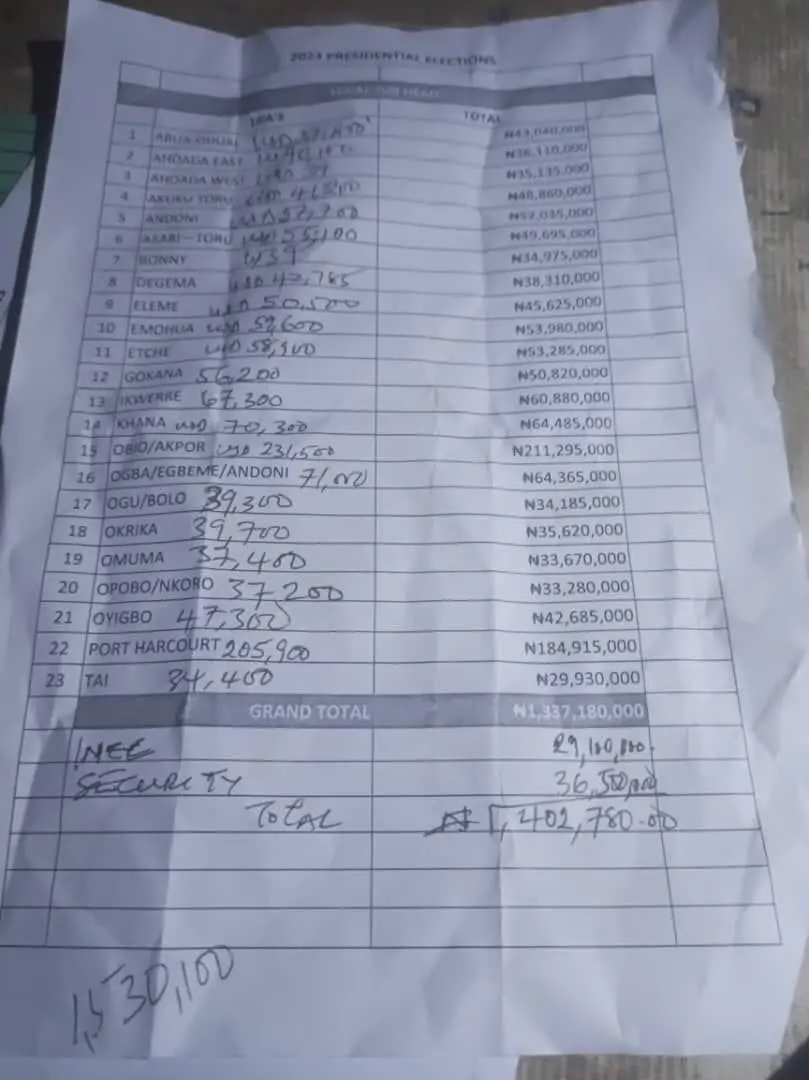 2023 PRESIDENTIAL ELECTIONS
LGA'S TOTAL
1 ABUA ODUAL USD ₦43,040,000
2 AHOADA EAST ₦36,110,000
3 AHOADA WEST ₦35,135,000
4 AKUKU TORU ₦48,860,000
5 ANDONI ₦52,035,000
6 ASARI - TORU USD 55,100 ₦49,695,000
7 BONNY ₦34,975,000
8 DEGEMA USD 42,785 ₦38,310,000
9 ELEME USD 50,500 ₦45,625,000
10 EMOHUA USD 59,600 ₦53,980,000
11 ETCHE USD 58,900 ₦53,285,000
12 GOKANA 56,200 ₦50,820,000
13 IKWERRE 67,300 ₦60,880,000
14 KHANA USD 70,300 ₦64,485,000
15 OBIO/AKPOR USD 231,500 ₦211,295,000
16 OGBA/EGBEME/ANDONI 71,000 ₦64,365,000
17 OGU/BOLO 39,300 ₦34,185,000
18 OKRIKA 39,700 ₦35,620,000
19 OMUMA 37,400 ₦33,670,000
20 OPOBO/NKORO 37200 ₦33,280,000
21 OYIGBO 47,300 ₦42,685,000
22 PORT HARCOURT 205,900 ₦184,915,000
23 TAI 34,400 ₦29,930,000
GRAND TOTAL ₦1,337,180,000
INEC 29,100,000
SECURITY 36,500,000
TOTAL ₦1,402,780.00
1,530,100